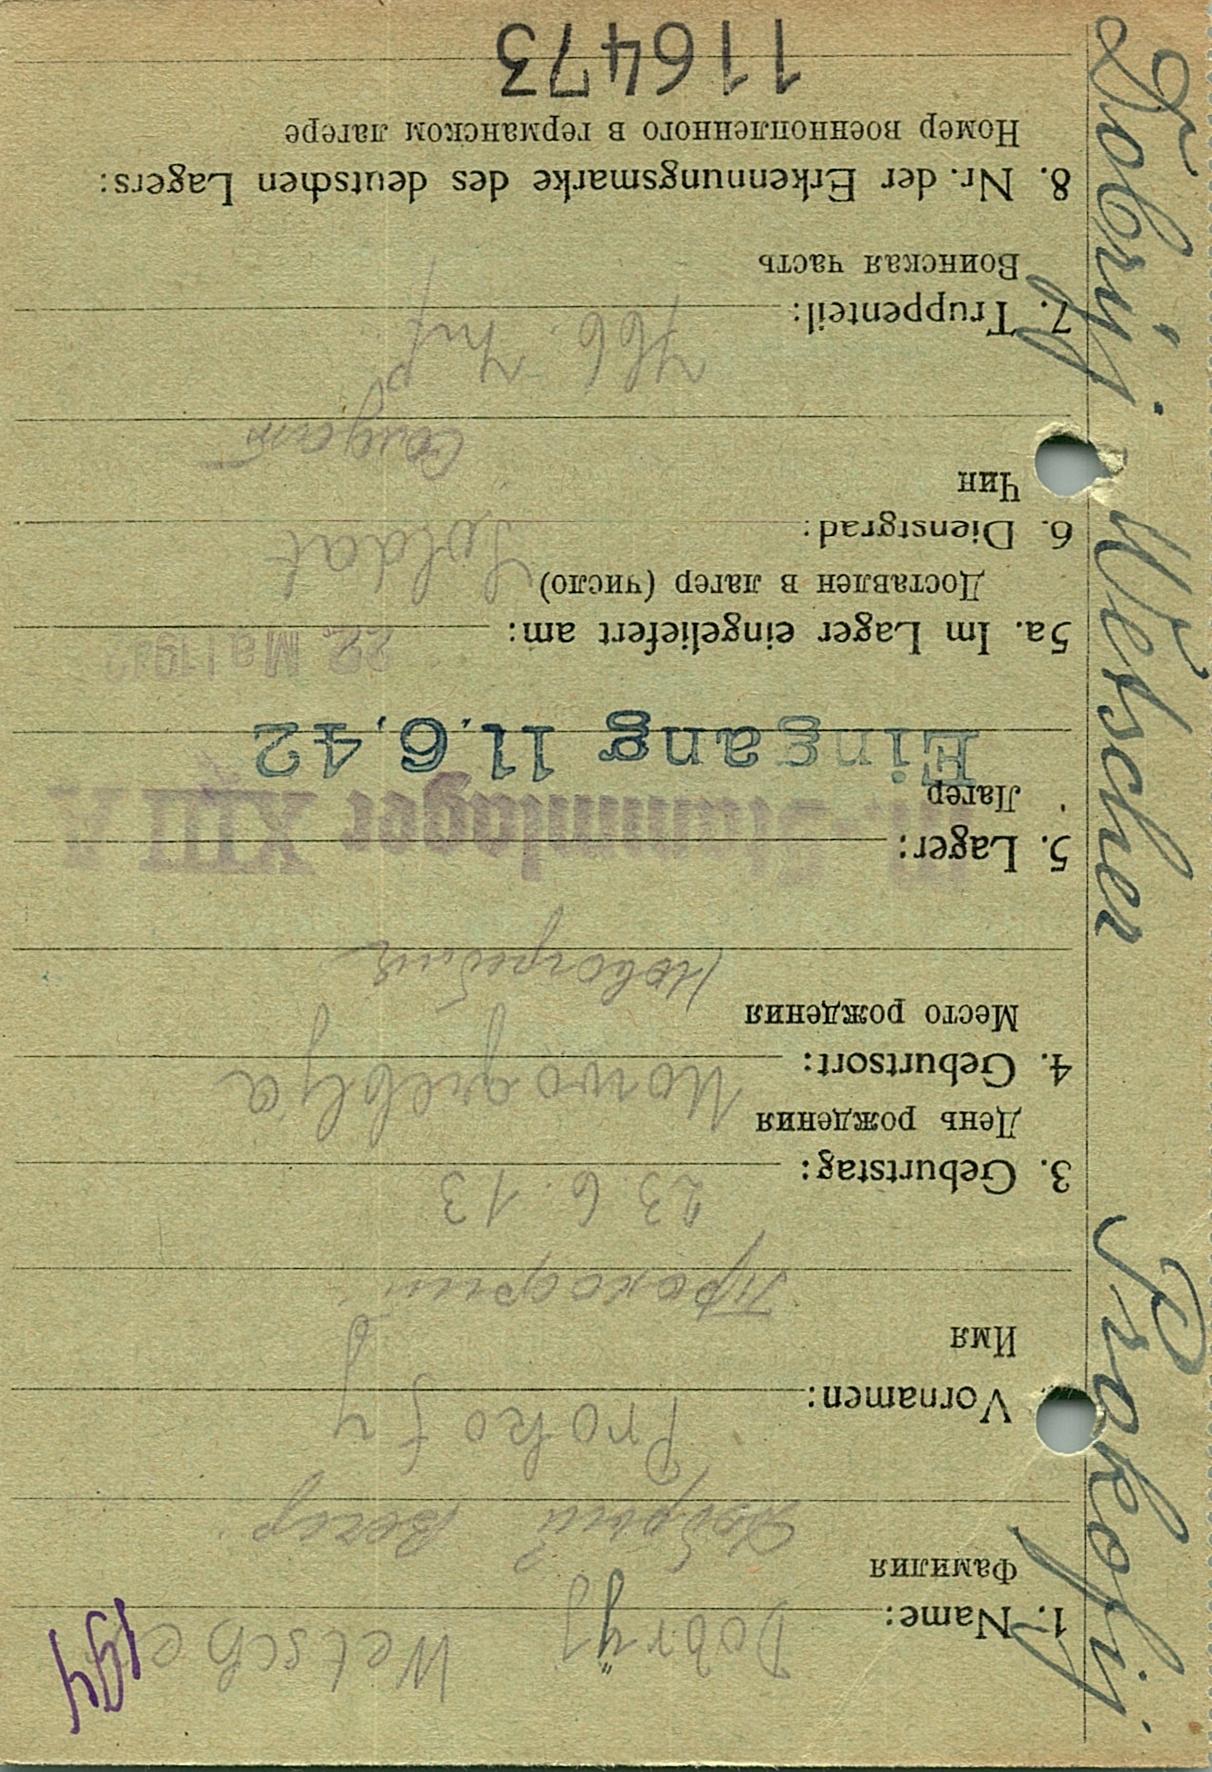 194
1. Name: Dobryj Wetscher
Фамилия Добрий Вечер
Vornamen: Prokofy
Имя Прокофий
3. Geburtstag: 23.6.13
День рождения
4. Geburtsort: Nowogreblya
Место рождения Новогребля
5. Lager: Stammlager XIII
Лагер
Eingang 11.6.42
5a. Im Lager eingeliefert am: 22. Mai 1942
Доставлен в лагер (число)
6. Dienstgrad: Soldat
Чин Солдат
7. Truppenteil: 466. Inf
Воинская часть
8. Nr. der Erkennungsmarke des deutschen Lagers:
Номер военнопленного в германском лагере
116473
Dobryj. Wetscher Prokofij.